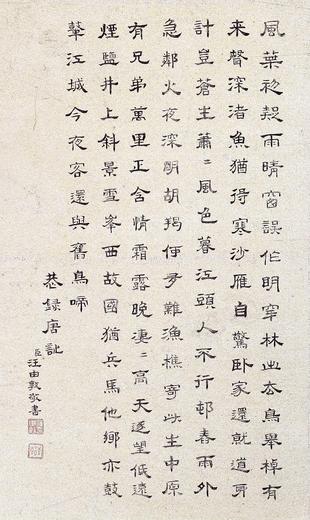 風葉初疑雨晴窗誤作明穿林出去鳥舉棹有
来聲深渚魚猶得寒沙雁自驚臥家還就道身
計豈蒼生蕭〻風色暮江頭人不行邨舂雨外
急鄰火夜深明胡羯何多難漁樵寄此生中原
有兄弟萬里正含情霜露晚凄〻高天逐望低遠
煙鹽井上斜景雪峯西故國猶兵馬他鄉亦鼓
鼙江城今夜客還與舊烏啼
恭録唐
臣汪由敦敬書